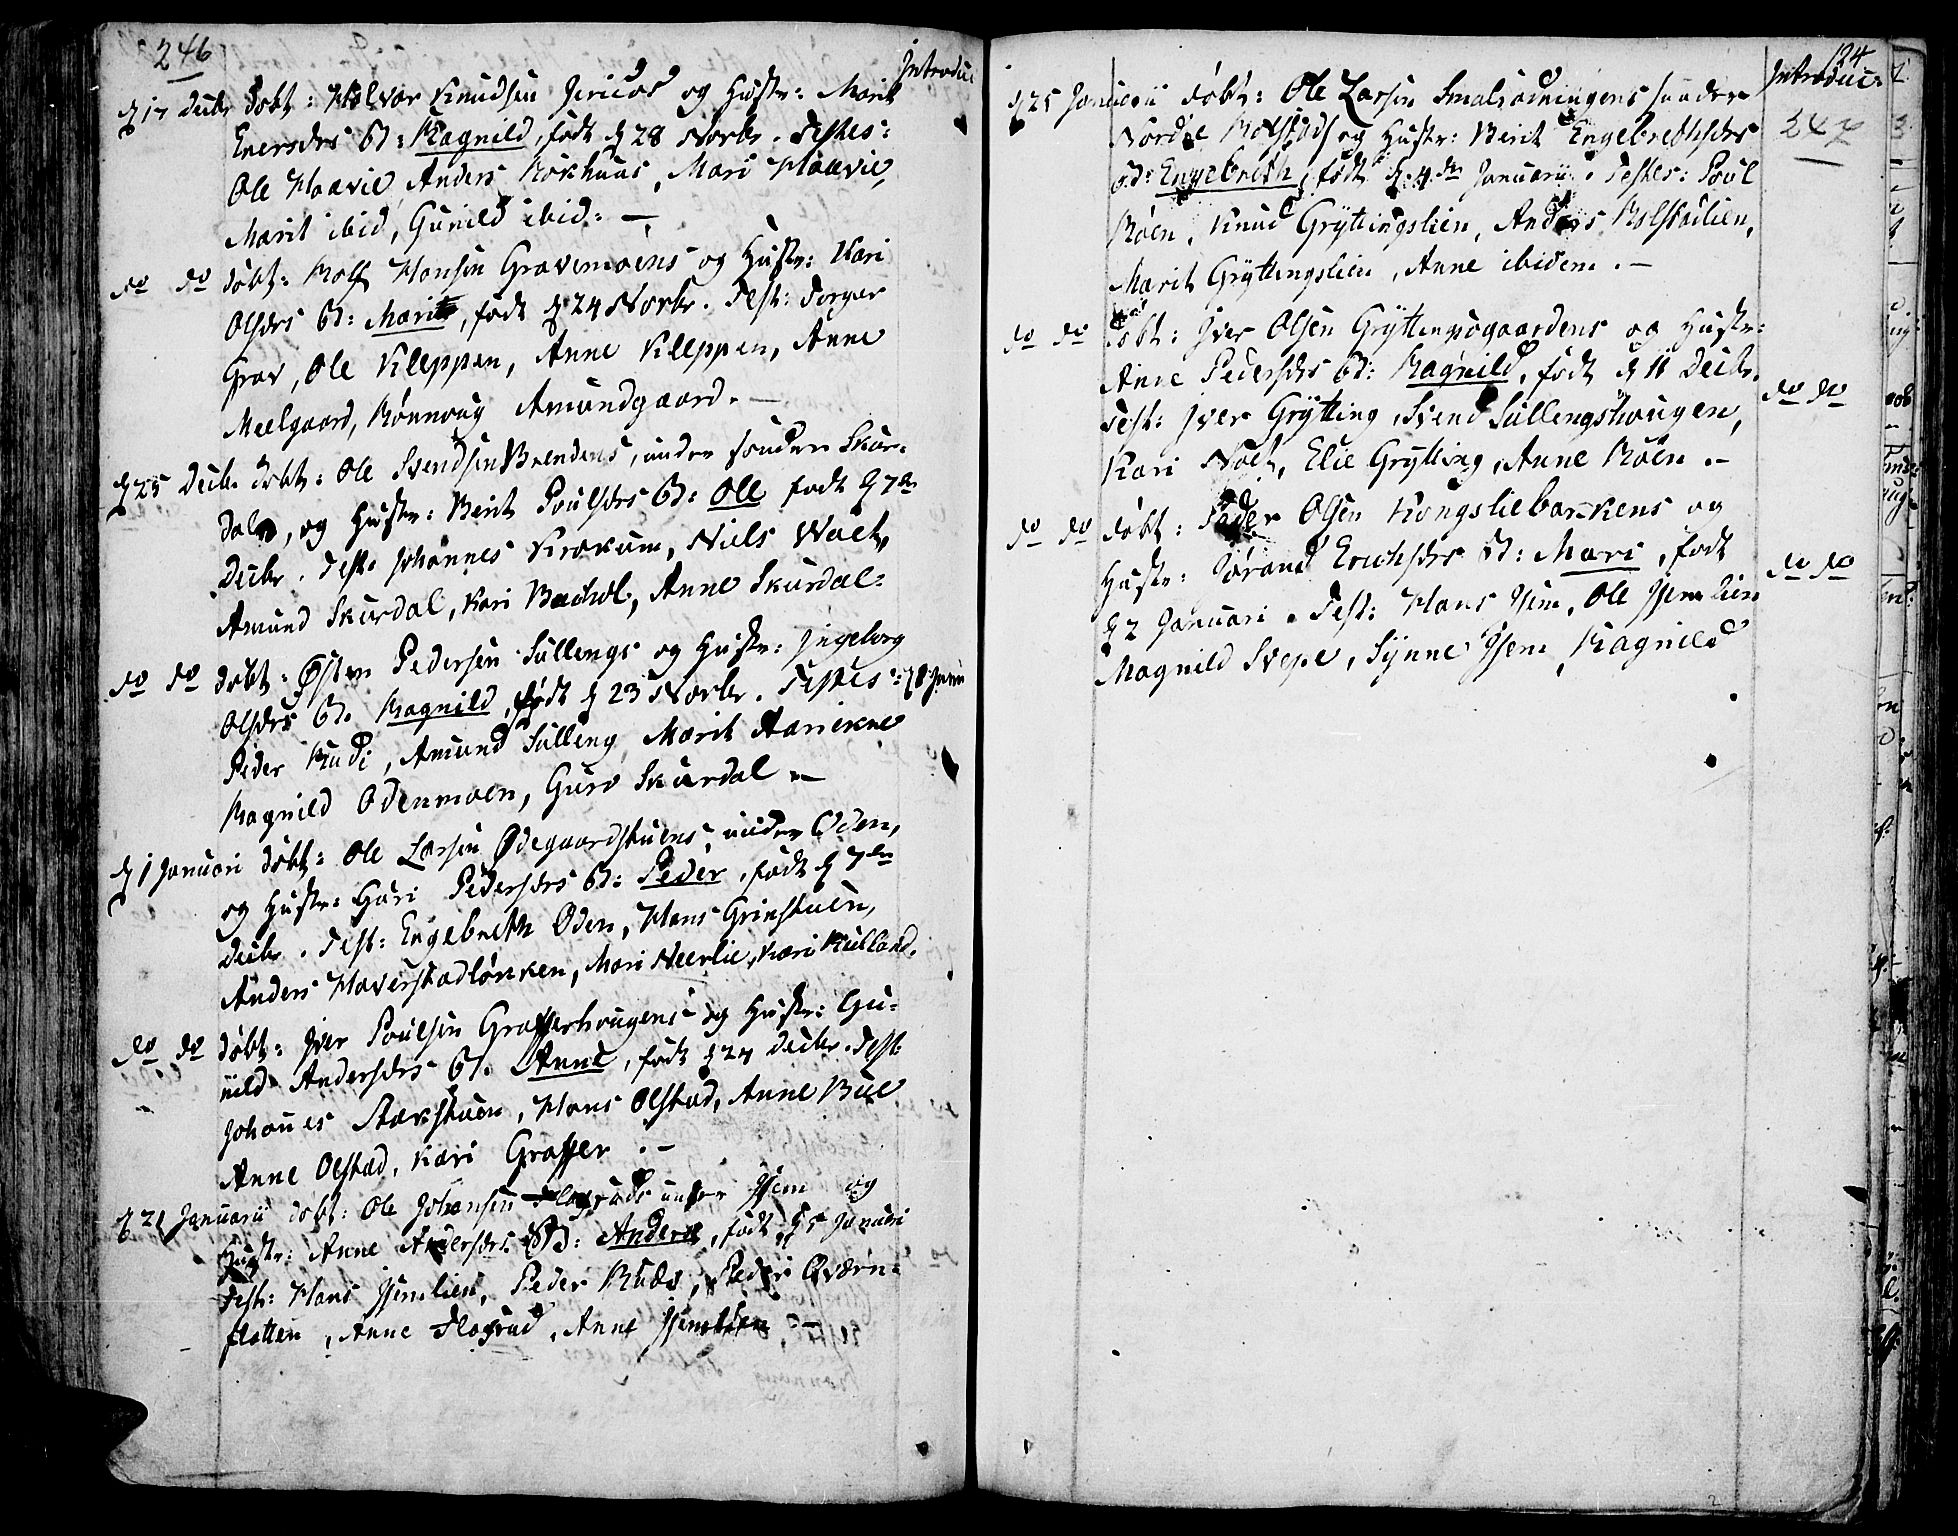 246
Introduc
d 17 Decbr døbt: Halvor Knudsen Jericos og Hustr: Marit
Enersdrs B: Ragnild, født d 28 Novbr. Testes:
Ole Haavie, Anders Kokhuus, Mari Haavie,
Marit ibid, Gunild ibid: —
do do døbt: Rolf Hansen Gravemoens og Hustr: Kari
Olsdrs B: Marit, født d 24 Novbr. Test: Torger
Grav, Ole Kleppen, Anne Kleppen, Anne
Meelgaard, Rønnoug Amundgaard. —
d 25 Decbr døbt: Ole Svendsen Brendens, under søndre Skur-
dal, og Hustr: Berit Poulsdrs B: Ole født d 7de
Decbr. Test: Johannes Krokum, Niels Woet,
Amund Skurdal, Kari, Anne Skurdal:
do do døbt: Østen Pedersen Sullengs og Hustr: Ingeborg
Olsdrs B. Ragnild, født d 23 Novbr. Testes: d 8 Janu
Peder Rudi, Amund Sulleng, Marit
Ragnild Odenmoen, Guro Skurdal —
d 1 Januari døbt: Ole Larsen Ødegaardstuens, under Oden,
og Hustr: Guri Pedersdrs B: Peder, født d 7de
Decbr. Test: Engebreth Oden, Hans Grinstuen,
Anders Haverstadløkken, Mari Neerlie, Kari Rulland.
do do døbt: Iver Poulsen Grafferhougens og Hustr: Gu-
nild Andersdrs B. Anne, født d 27 Decbr. Test:
Johannes Stokstuen, Hans Olstad, Anne Bue
Anne Olstad, Kari Graffer. —
d 21 Januarii døbt: Ole Johansen Flogruds under Isem og
Hustr: Anne Andersdrs B: Anders, født d 5 Januari
Test: Hans Isemlien, Peder Ruds, Peder Qværn-
flotten, Anne Flogrud, Anne —
124
Introduc:
247
d 25 Januarii døbt: Ole Larsen Smalrødningens under
Nordre Kolstad, og Hustr: Berit Engebrethsdrs
B: Engebreth, født d 4de Januarii. Testes: Poul
Røen, Knud Gryttingslien, Anders Kolstadlien,
Marit Gryttingslien, Anne ibidem. —
do do døbt: Iver Olsen Gryttingsøgaardens og Hustr:
Anne Pedersdrs B: Ragnild, født d 11 Decbr.
do do
Test: Iver Grytting, Svend Sullengshougen,
Kari Noet, Elie Grytting, Anne Røen. —
do do døbt: Peder Olsen Kongsliebakkens og
Hustr: Jorand Erichsdrs B: Mari, født
do do
d 2 Januari. Test: Hans Isem, Ole Isemlien
Magnild Svepe, Synne Isem, Ragnild